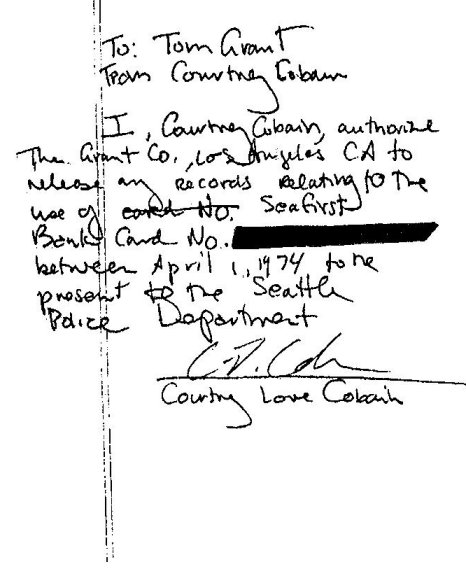 To: Tom Grant
From Courtney Cobain
I, Courtney Cobain, authorize
The Grant Co., Los Angeles CA to
release any records relating to the
use of card No. Seafirst
Bank Card No.
between April 1, 1974 to the
present to the Seattle
Police Department
Courtney Love Cobain